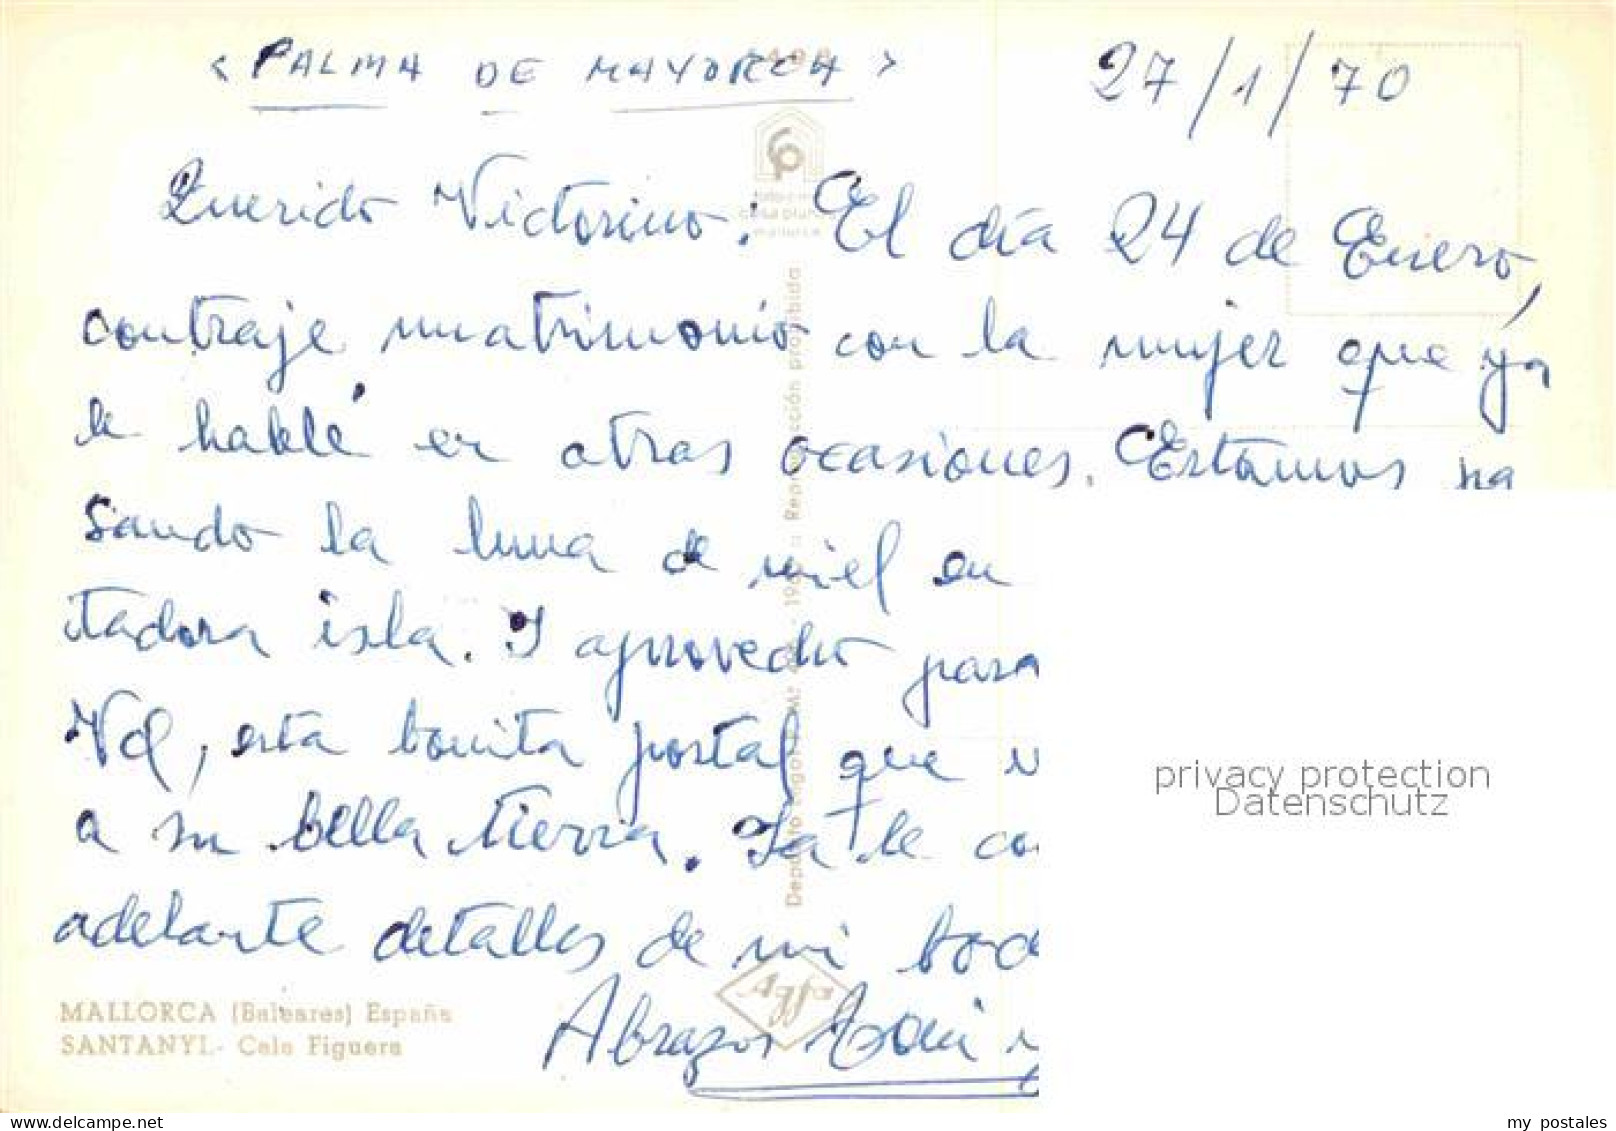 < PALMA DE MAYORCA >
27/1/70
Querido Victorino: El día 24 de Enero,
contraje matrimonio con la mujer que ya
le hablé en otras ocasiones. Estamos pa
sando la luna de miel en
itadora isla. Y aprovecho para
Vd, esta bonita postal que
a su bella tierra. Ya le co
adelante detalles de mi bod
Abrazos
MALLORCA (Baleares) España
SANTANYI.- Cala Figuera
mallorca
Reproducción prohibida
Agfa
privacy protection
Datenschutz
www.delcampe.net
my_postales